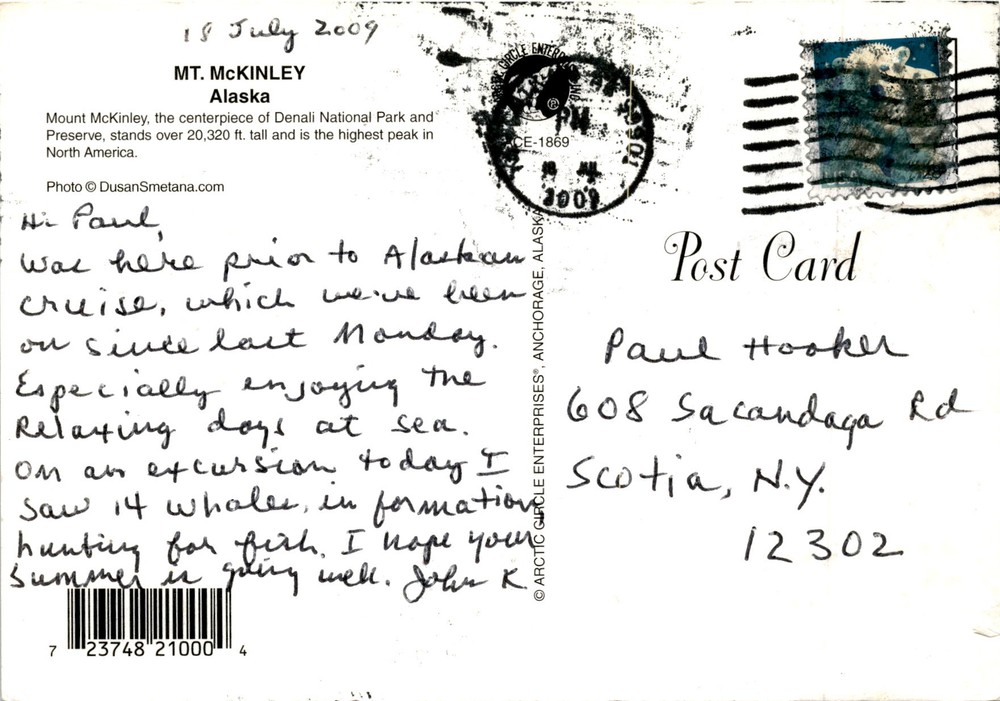 18 July 2009
MT. McKINLEY
Alaska
Mount McKinley, the centerpiece of Denali National Park and
Preserve, stands over 20,320 ft. tall and is the highest peak in
North America.
Photo © DusanSmetana.com
Hi Paul,
Was here prior to Alaskan
cruise, which we've been
on since last Monday.
Especially enjoying the
Relaxing days at sea.
On an excursion today I
saw 14 whales, in formation
hunting for fish. I hope your
summer is going well. John K.
7 23748 21000 4
CIRCLE ENTER
CE-1869
PM
2009
© ARCTIC CIRCLE ENTERPRISES®, ANCHORAGE, ALASKA
Post Card
Paul Hooker
608 Sacandaga Rd
Scotia, N.Y.
12302